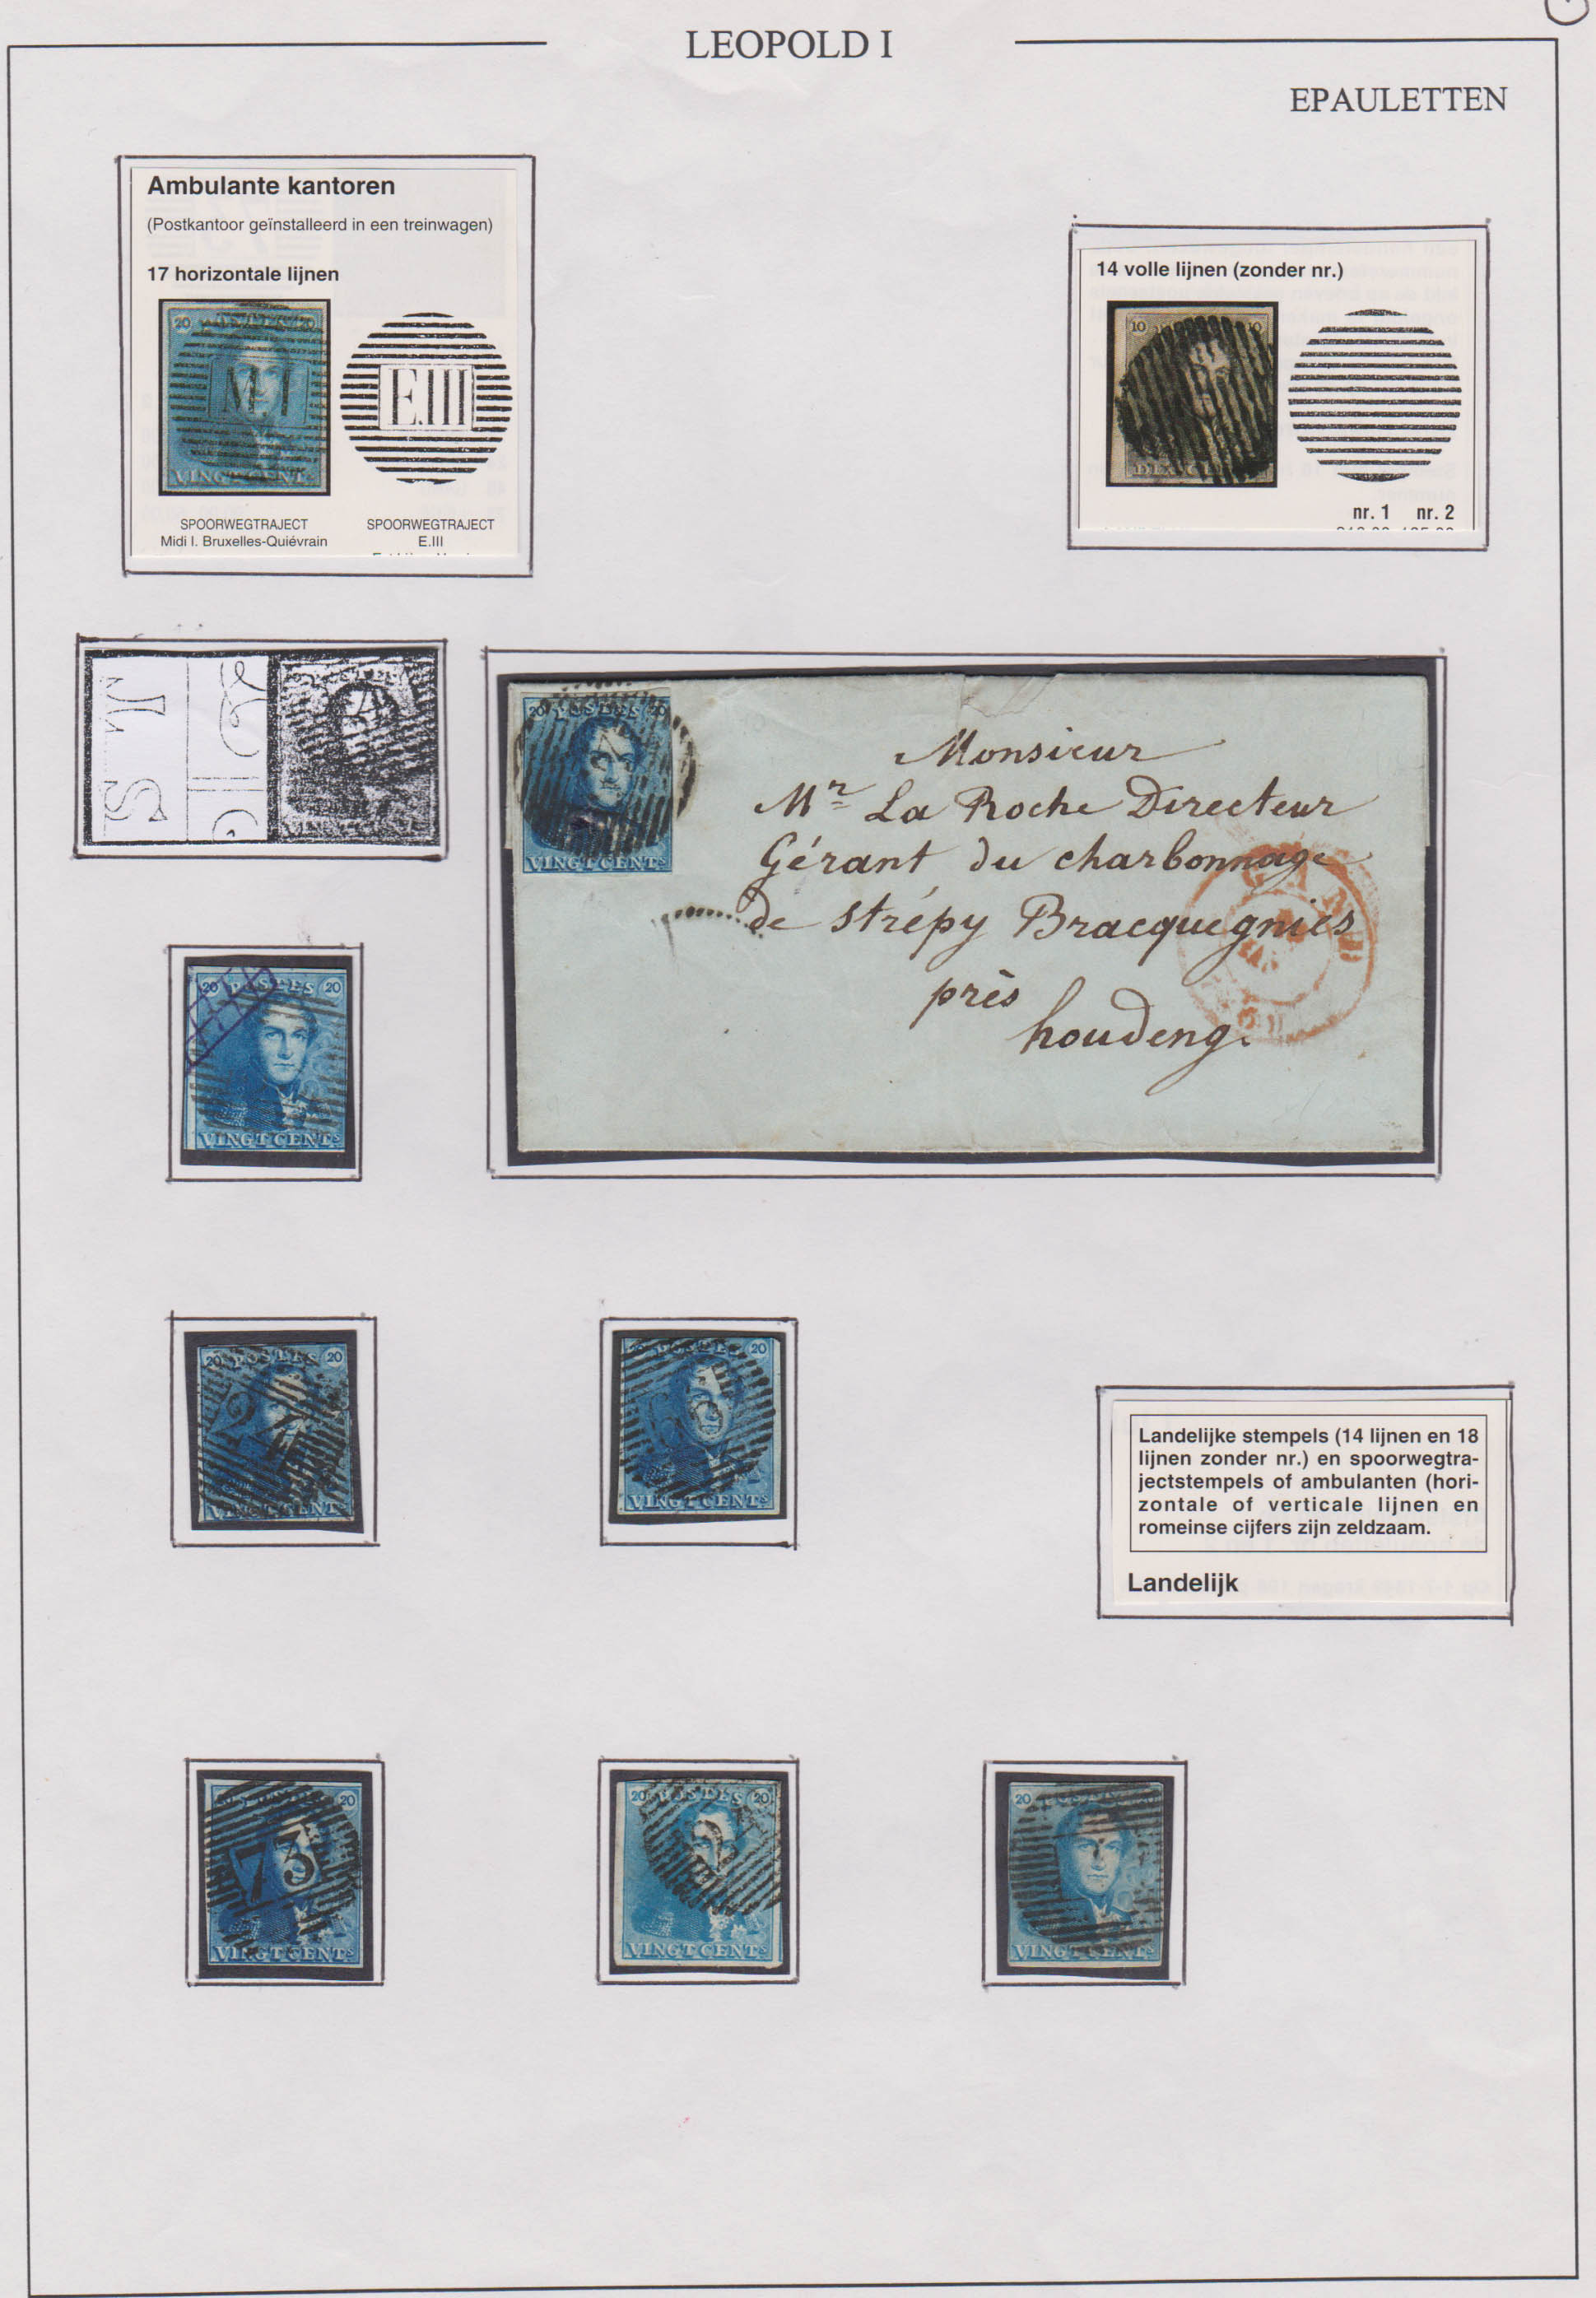 LEOPOLD I
EPAULETTEN
Ambulante kantoren
(Postkantoor geïnstalleerd in een treinwagen)
17 horizontale lijnen
20 20
M I
VINGT CENTS
E.III
SPOORWEGTRAJECT
Midi I. Bruxelles-Quiévrain
SPOORWEGTRAJECT
E.III
14 volle lijnen (zonder nr.)
10 10
nr. 1 nr. 2
20 POSTES 20
VINGT CENTS
Monsieur
Mr La Roche Directeur
Gérant du charbonnage
de Strépy Bracquegnies
près
houdeng.
GAND
20 POSTES 20
VINGT CENTS
20 POSTES 20
24
VINGT CENTS
20 POSTES 20
VINGT CENTS
Landelijke stempels (14 lijnen en 18
lijnen zonder nr.) en spoorwegtra-
jectstempels of ambulanten (hori-
zontale of verticale lijnen en
romeinse cijfers zijn zeldzaam.
Landelijk
20 POSTES 20
73
VINGT CENTS
20 POSTES 20
VINGT CENTS
20 POSTES 20
VINGT CENTS